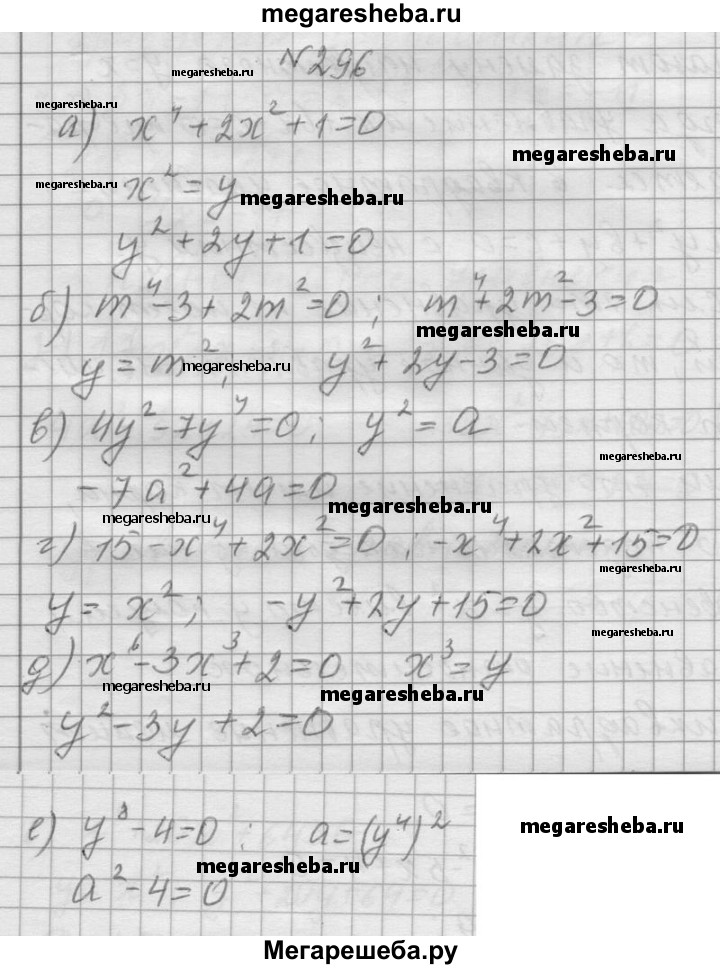 megaresheba.ru
№296
megaresheba.ru
megaresheba.ru
а) x⁴ + 2x² + 1 = 0
megaresheba.ru
megaresheba.ru
x² = y
megaresheba.ru
y² + 2y + 1 = 0
б) m⁴ - 3 + 2m² = 0 ; m⁴ + 2m² - 3 = 0
megaresheba.ru
y = m² ; y² + 2y - 3 = 0
megaresheba.ru
в) 4y² - 7y⁴ = 0 ; y² = a
megaresheba.ru
-7a² + 4a = 0
megaresheba.ru
megaresheba.ru
г) 15 - x⁴ + 2x² = 0 ; -x⁴ + 2x² + 15 = 0
megaresheba.ru
y = x² ; -y² + 2y + 15 = 0
megaresheba.ru
д) x⁶ - 3x³ + 2 = 0 x³ = y
megaresheba.ru
megaresheba.ru
y² - 3y + 2 = 0
е) y⁸ - 4 = 0 ; a = (y⁴)²
megaresheba.ru
megaresheba.ru
a² - 4 = 0
Мегарешеба.ру